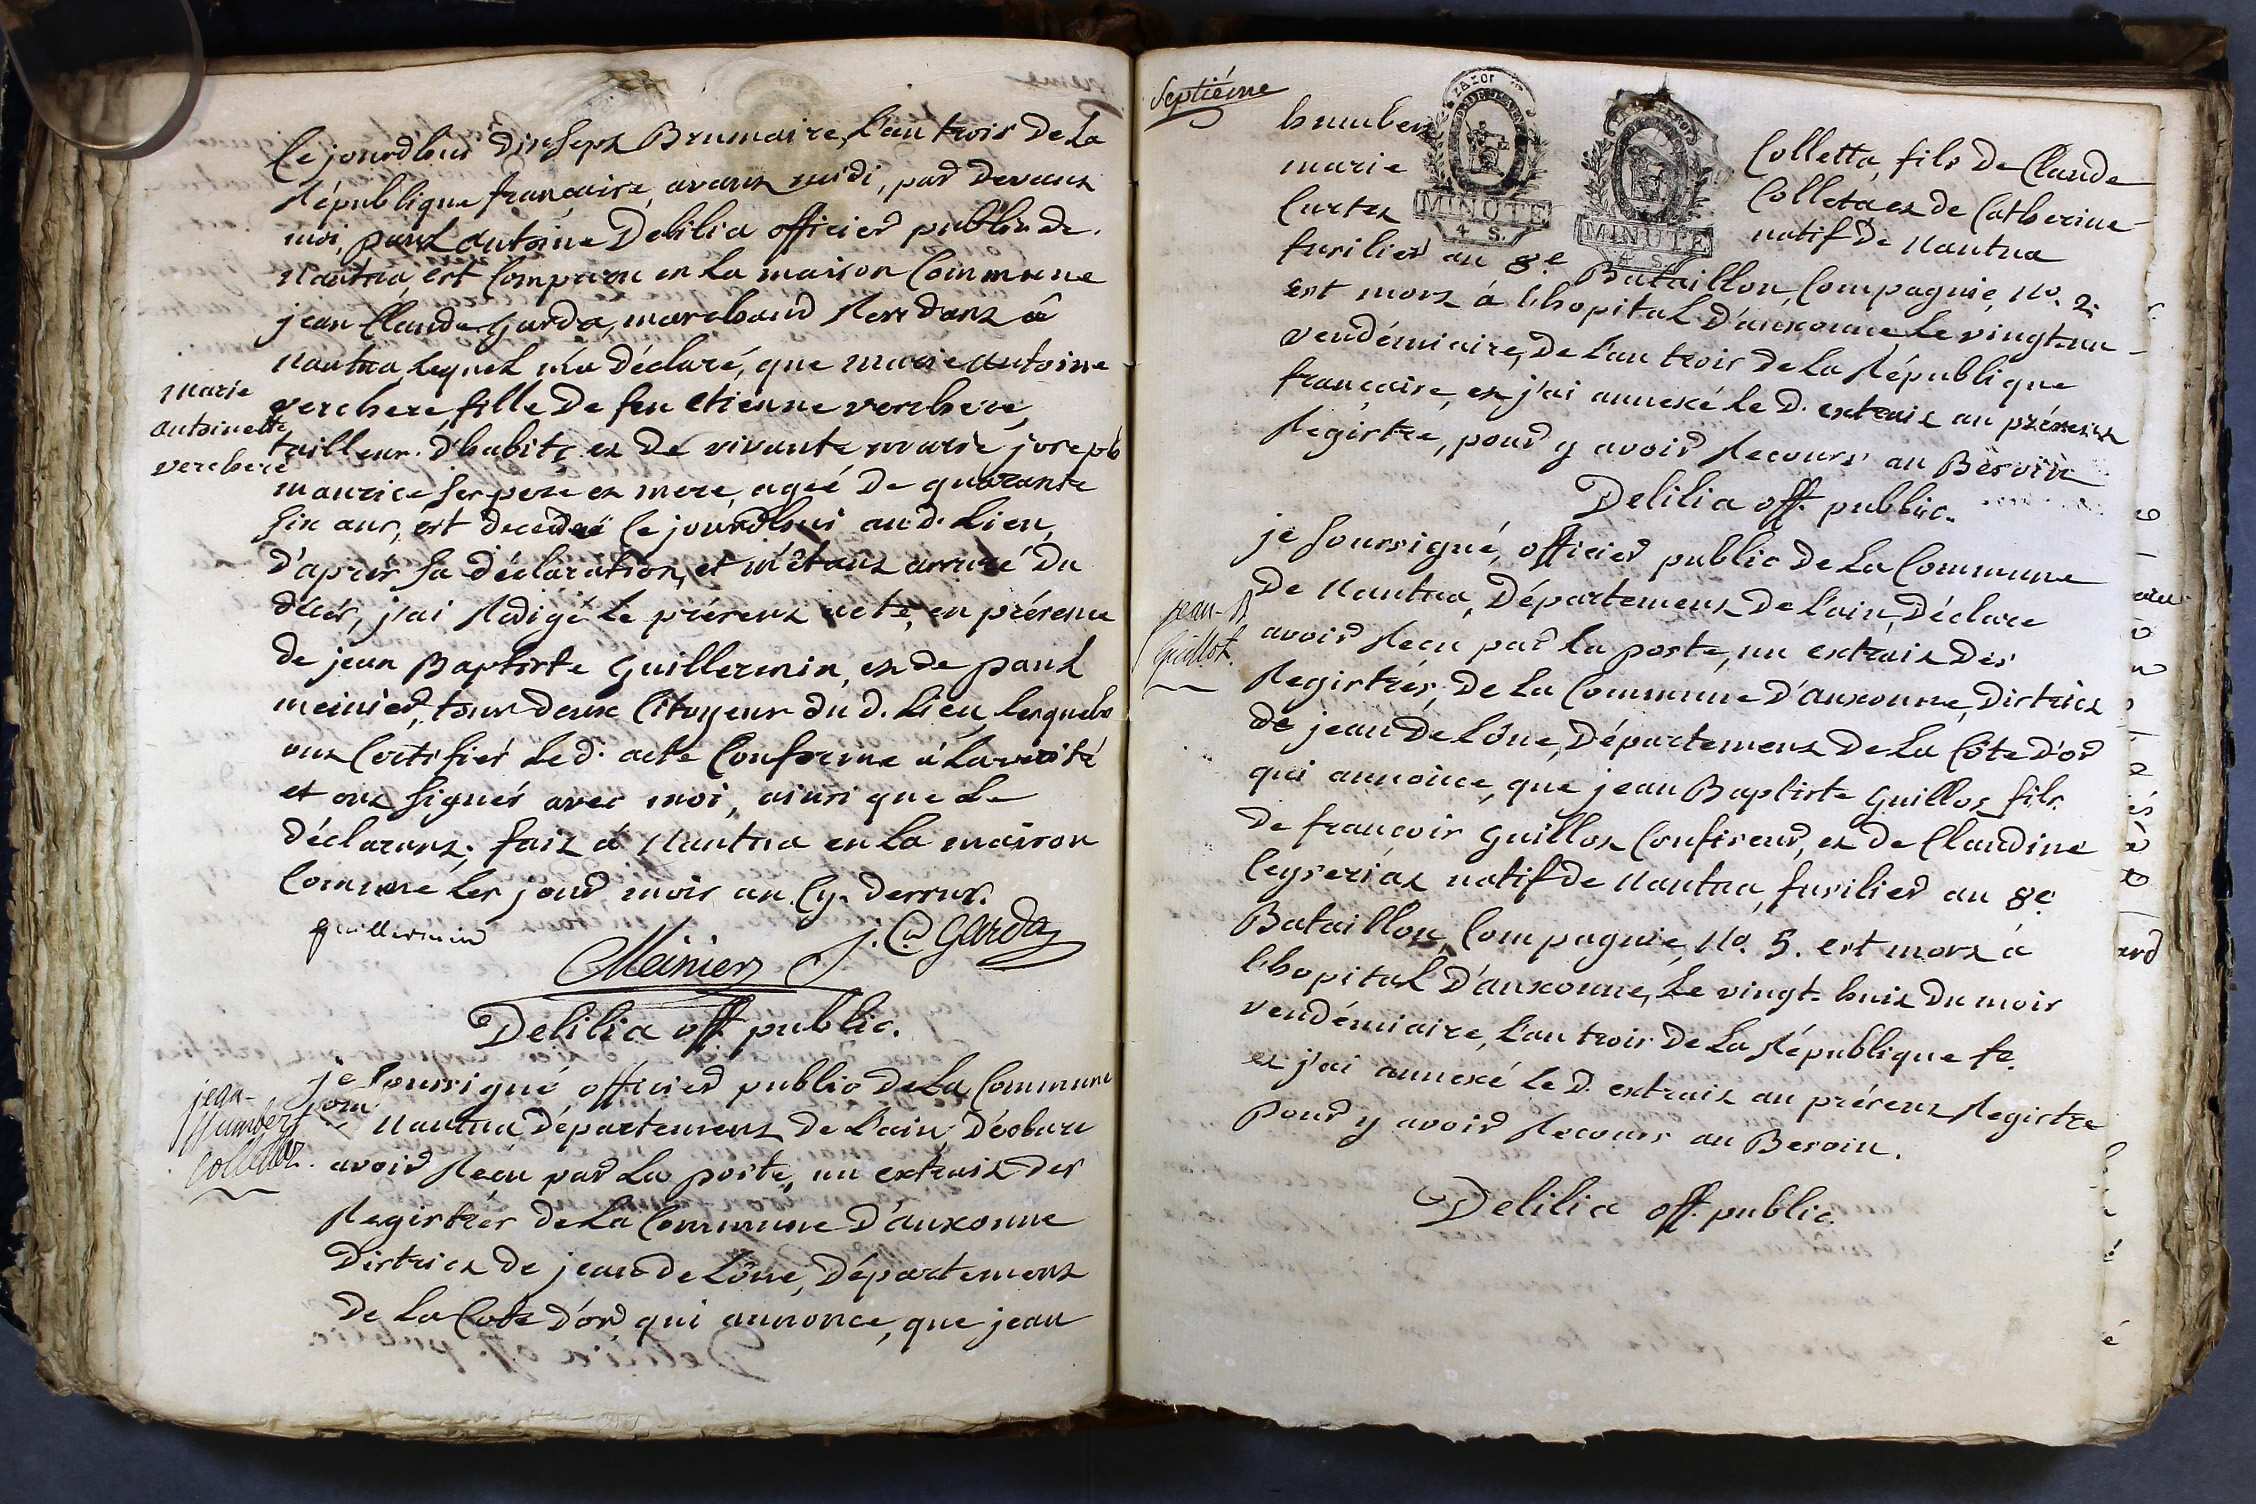 Ce jourdhui dixsept Brumaire, l'an trois de la
République française, avant midi, par devant
moi, paul antoine Delilia officier public de
Nantua, est Comparu en la maison Commune
jean Claude Garda, marchand Residant à
Nantua, lequel m'a déclaré, que marie antoine
marie
antoinette
verchere
verchere, fille de feu etienne verchere,
tailleur d'habits, et de vivante marie joseph
maurice ses pere et mere, agée de quarante
six ans, est decedeé Ce jourdhui au d. Lieu,
d'après sa déclaration, et m'étant assuré du
décés, j'ai Rédigé le présent acte, en présence
de jean Baptiste Guillermin, et de paul
meinier, tous deux Citoyens du d. Lieu, lesquels
ont Certifiés le d. acte Conforme à la verité
et ont signés avec moi, ainsi que le
déclarant; fait à Nantua en la maison
Comune les jour mois an Cy. dessus.
guillermin
Meinier J. Cd Garda
Delilia off. public.
jean-
Humbert
Collettaz.
je soussigné officier public de la Commune
Nantua, Département de l'ain, Déclare
avoir Reçu par la poste, un extrait des
Registres de la Commune d'auxonne
District de jean de Lône, Département
de la Cote d'or, qui annonce, que jean
Septiéme
humbert Colletta, fils de Claude
marie Colleta et de Catherine
Curtet natif de Nantua
MINUTE
4. S.
MINUTE
4. S.
fusilier au 8.e Bataillon, Compagnie, No. 2.
est mort à l'hopital d'auxonne le vingt-un
vendémiaire, de l'an trois de la République
française, et j'ai annexé le d. extrait au présent
Registre, pour y avoir Recours au Besoin
Delilia off. public.
jean-B
Guillot.
je soussigné, officier public de la Commune
de Nantua, Département de l'ain, Déclare
avoir Reçu par la poste, un extrait des
Registres, de la Commune d'auxonne, District
de jean de Lône, Département de la Côte d'or
qui annonce, que jean Baptiste Guillot fils
de françois Guillot Confiseur, et de Claudine
leyseriat natif de Nantua, fusilier au 8e.
Bataillon, Compagnie, No. 5. est mort à
l'hopital d'auxonne, le vingt-huit du mois
vendémiaire, l'an trois de la République fe.
et j'ai annexé le d. extrait au présent Registre
pour y avoir Recours au Besoin.
Delilia off. public.